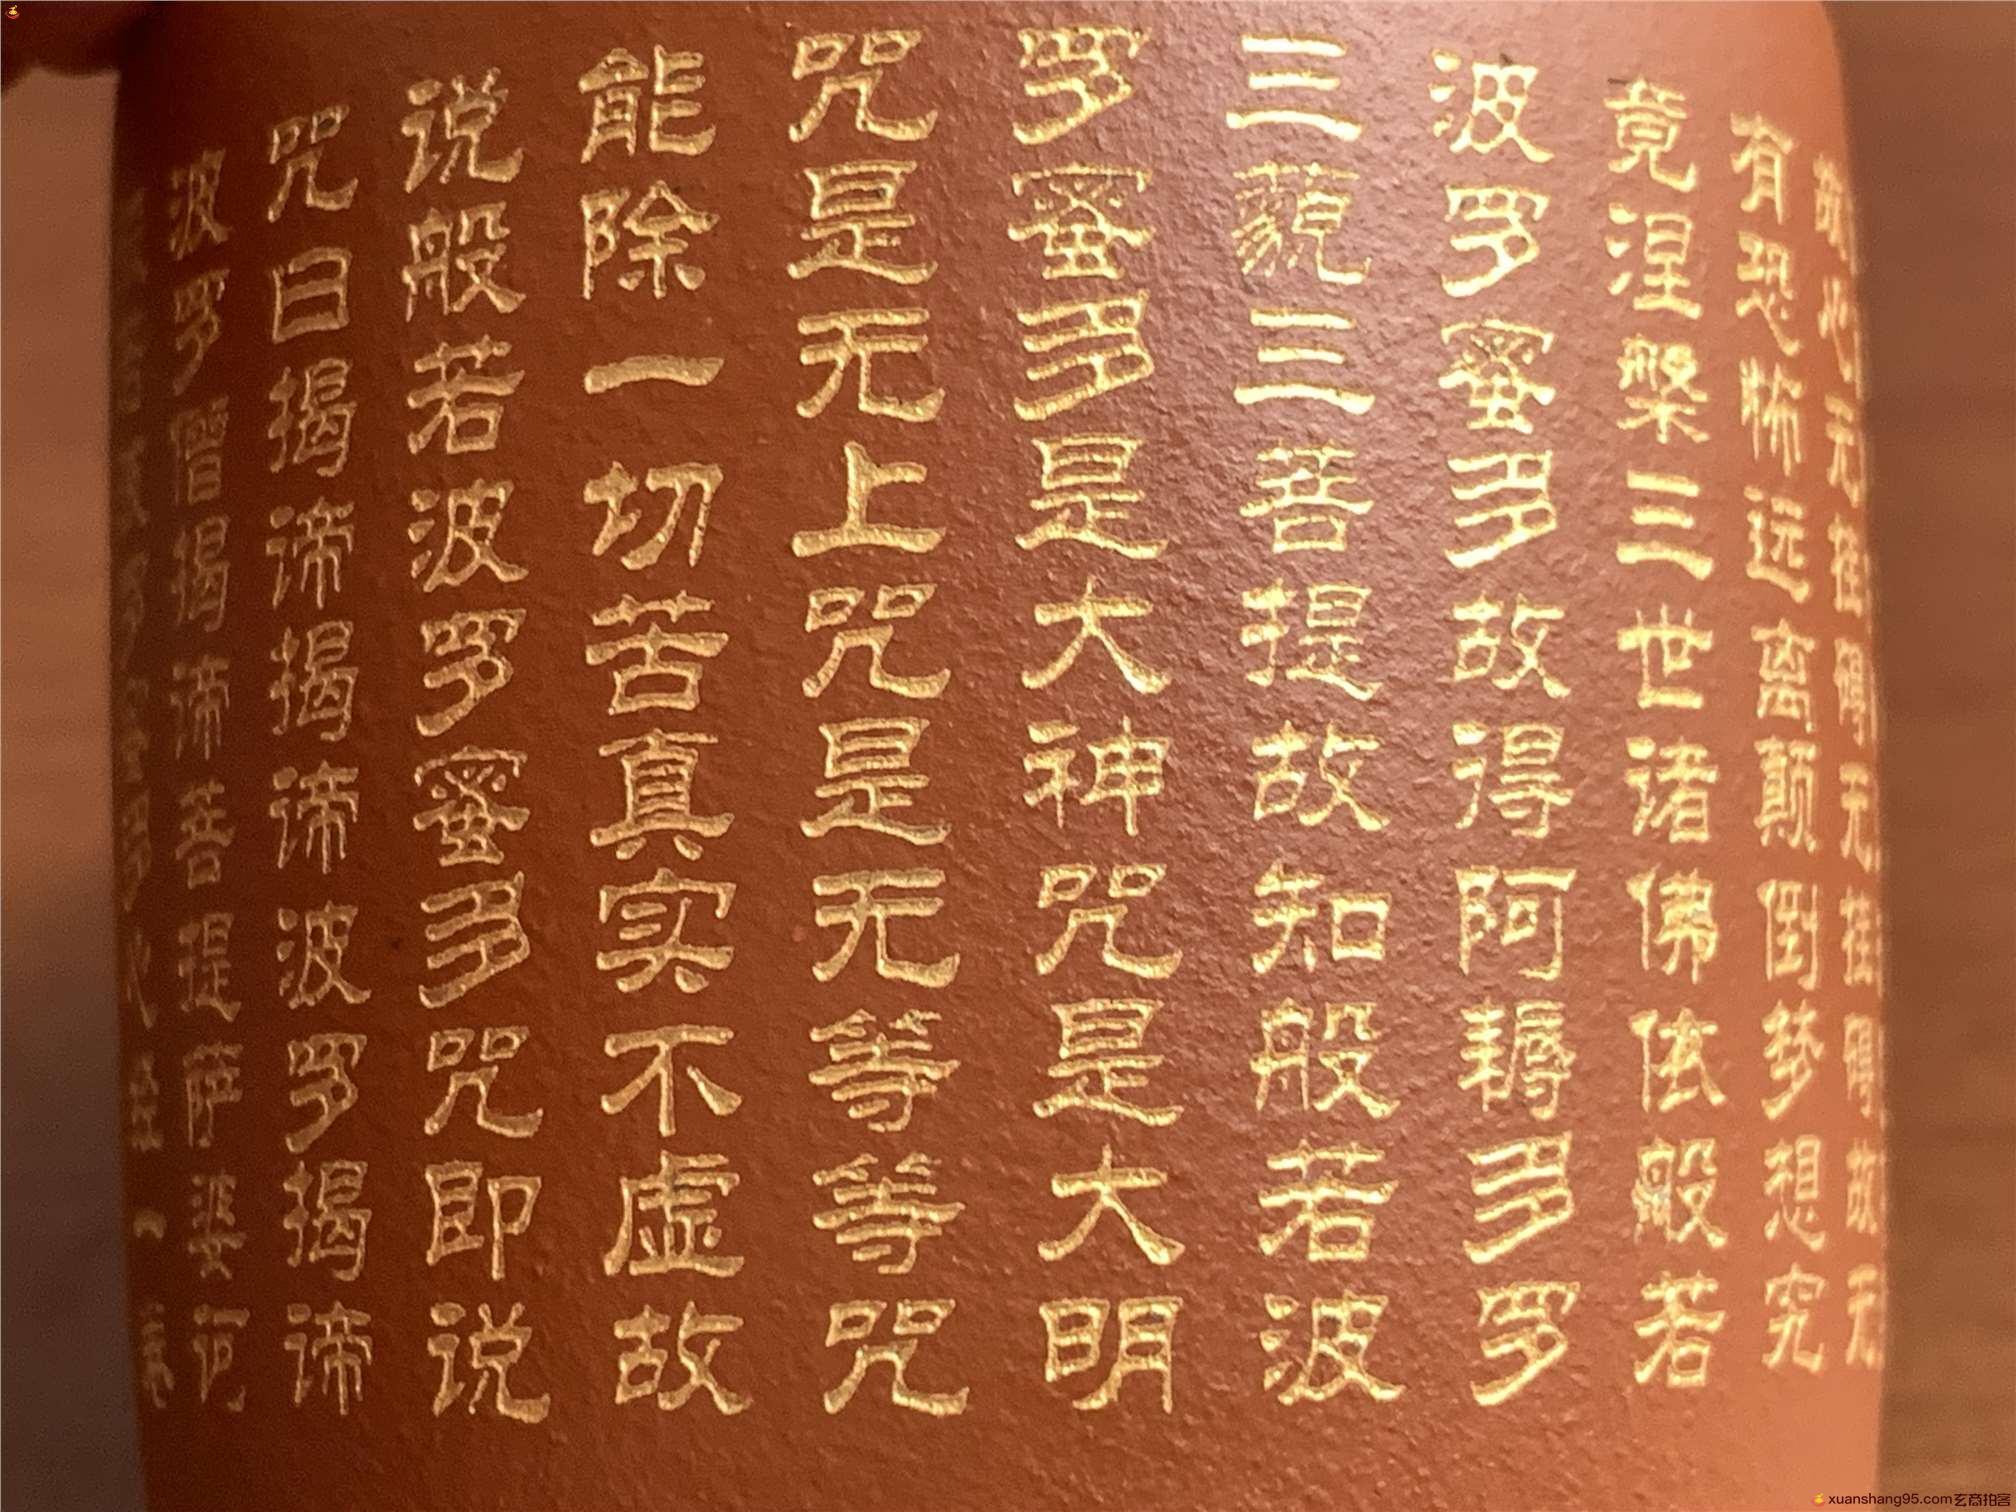 故心无挂碍无挂碍故无
有恐怖远离颠倒梦想究
竟涅槃三世诸佛依般若
波罗蜜多故得阿耨多罗
三藐三菩提故知般若波
罗蜜多是大神咒是大明
咒是无上咒是无等等咒
能除一切苦真实不虚故
说般若波罗蜜多咒即说
咒曰揭谛揭谛波罗揭谛
波罗僧揭谛菩提萨婆诃
xuanshang95.com玄商拍客